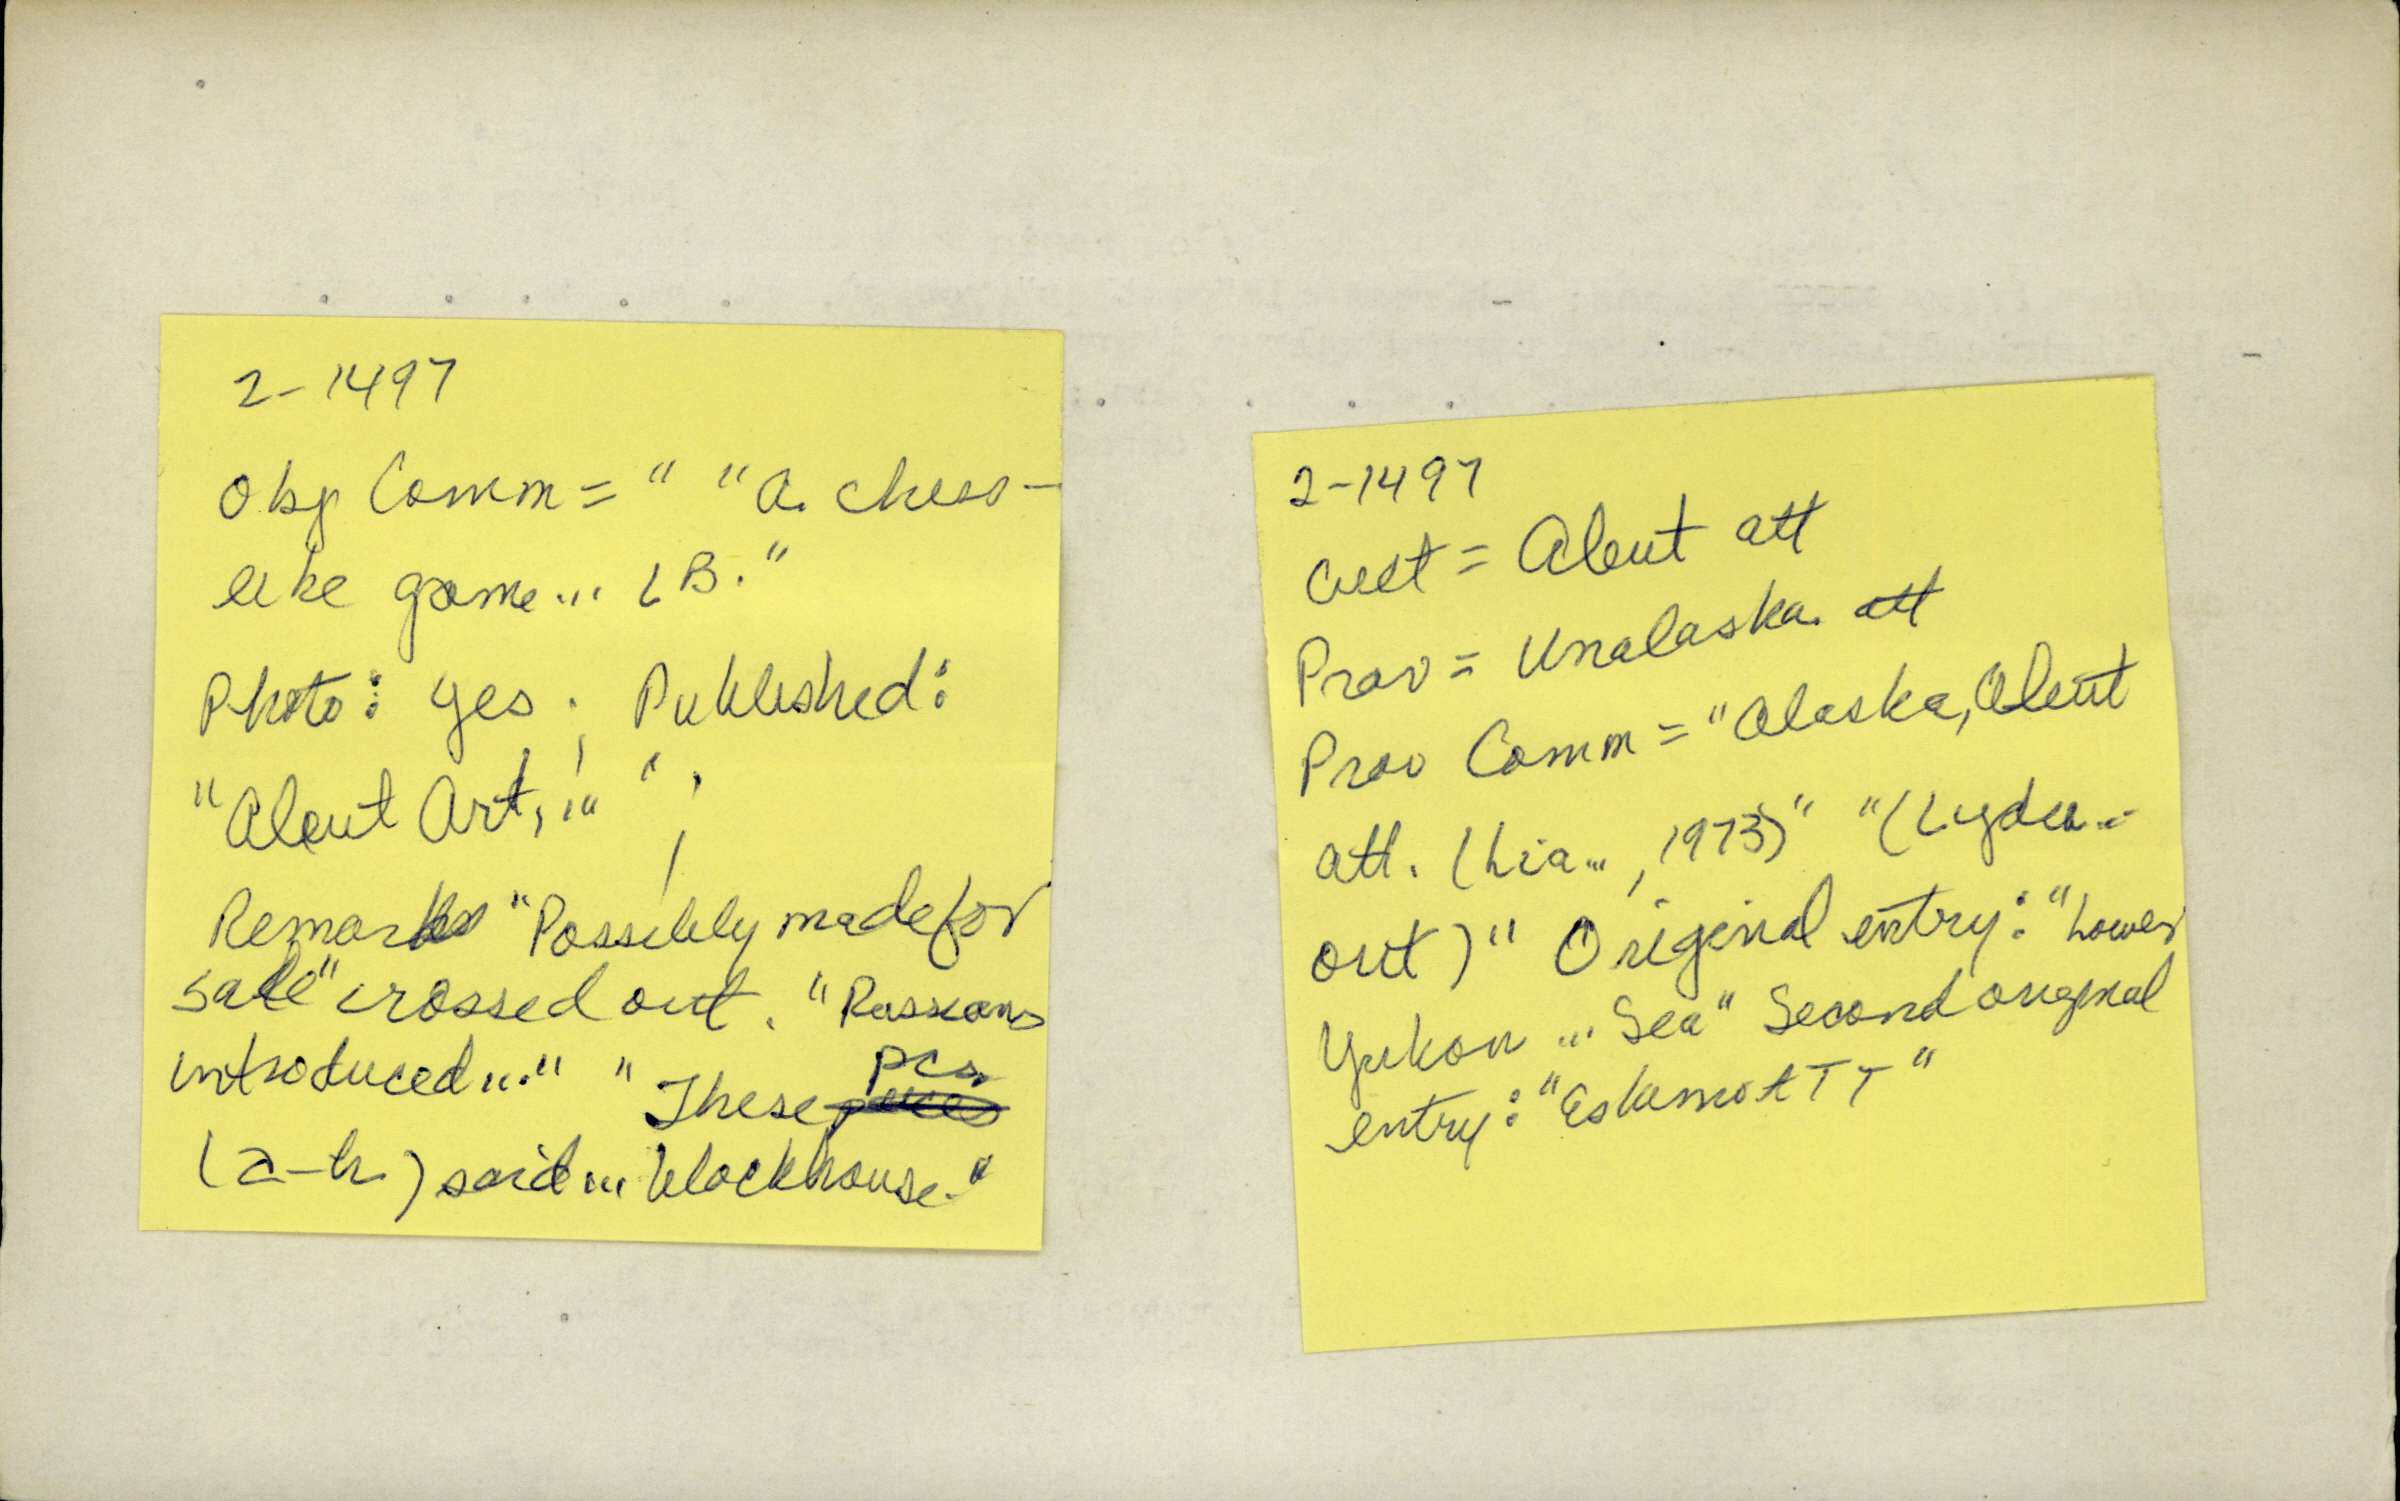 2-1497
Obj Comm = " "A chess-
like game... LB."
Photo: yes; Published:
"Aleut Art,..." ";
Remarks "Possibly made for
sale" crossed out. "Russians
introduced..." "These pcs.
(a-h) said... blockhouse."
2-1497
Cult = Aleut att
Prov = Unalaska. att
Prov Comm = "Alaska, Aleut
att. (Lia..., 1973)" "(Lydia...
out)" Original entry: "Lower
Yukon ... Sea" Second original
entry: "Eskimo ATT"